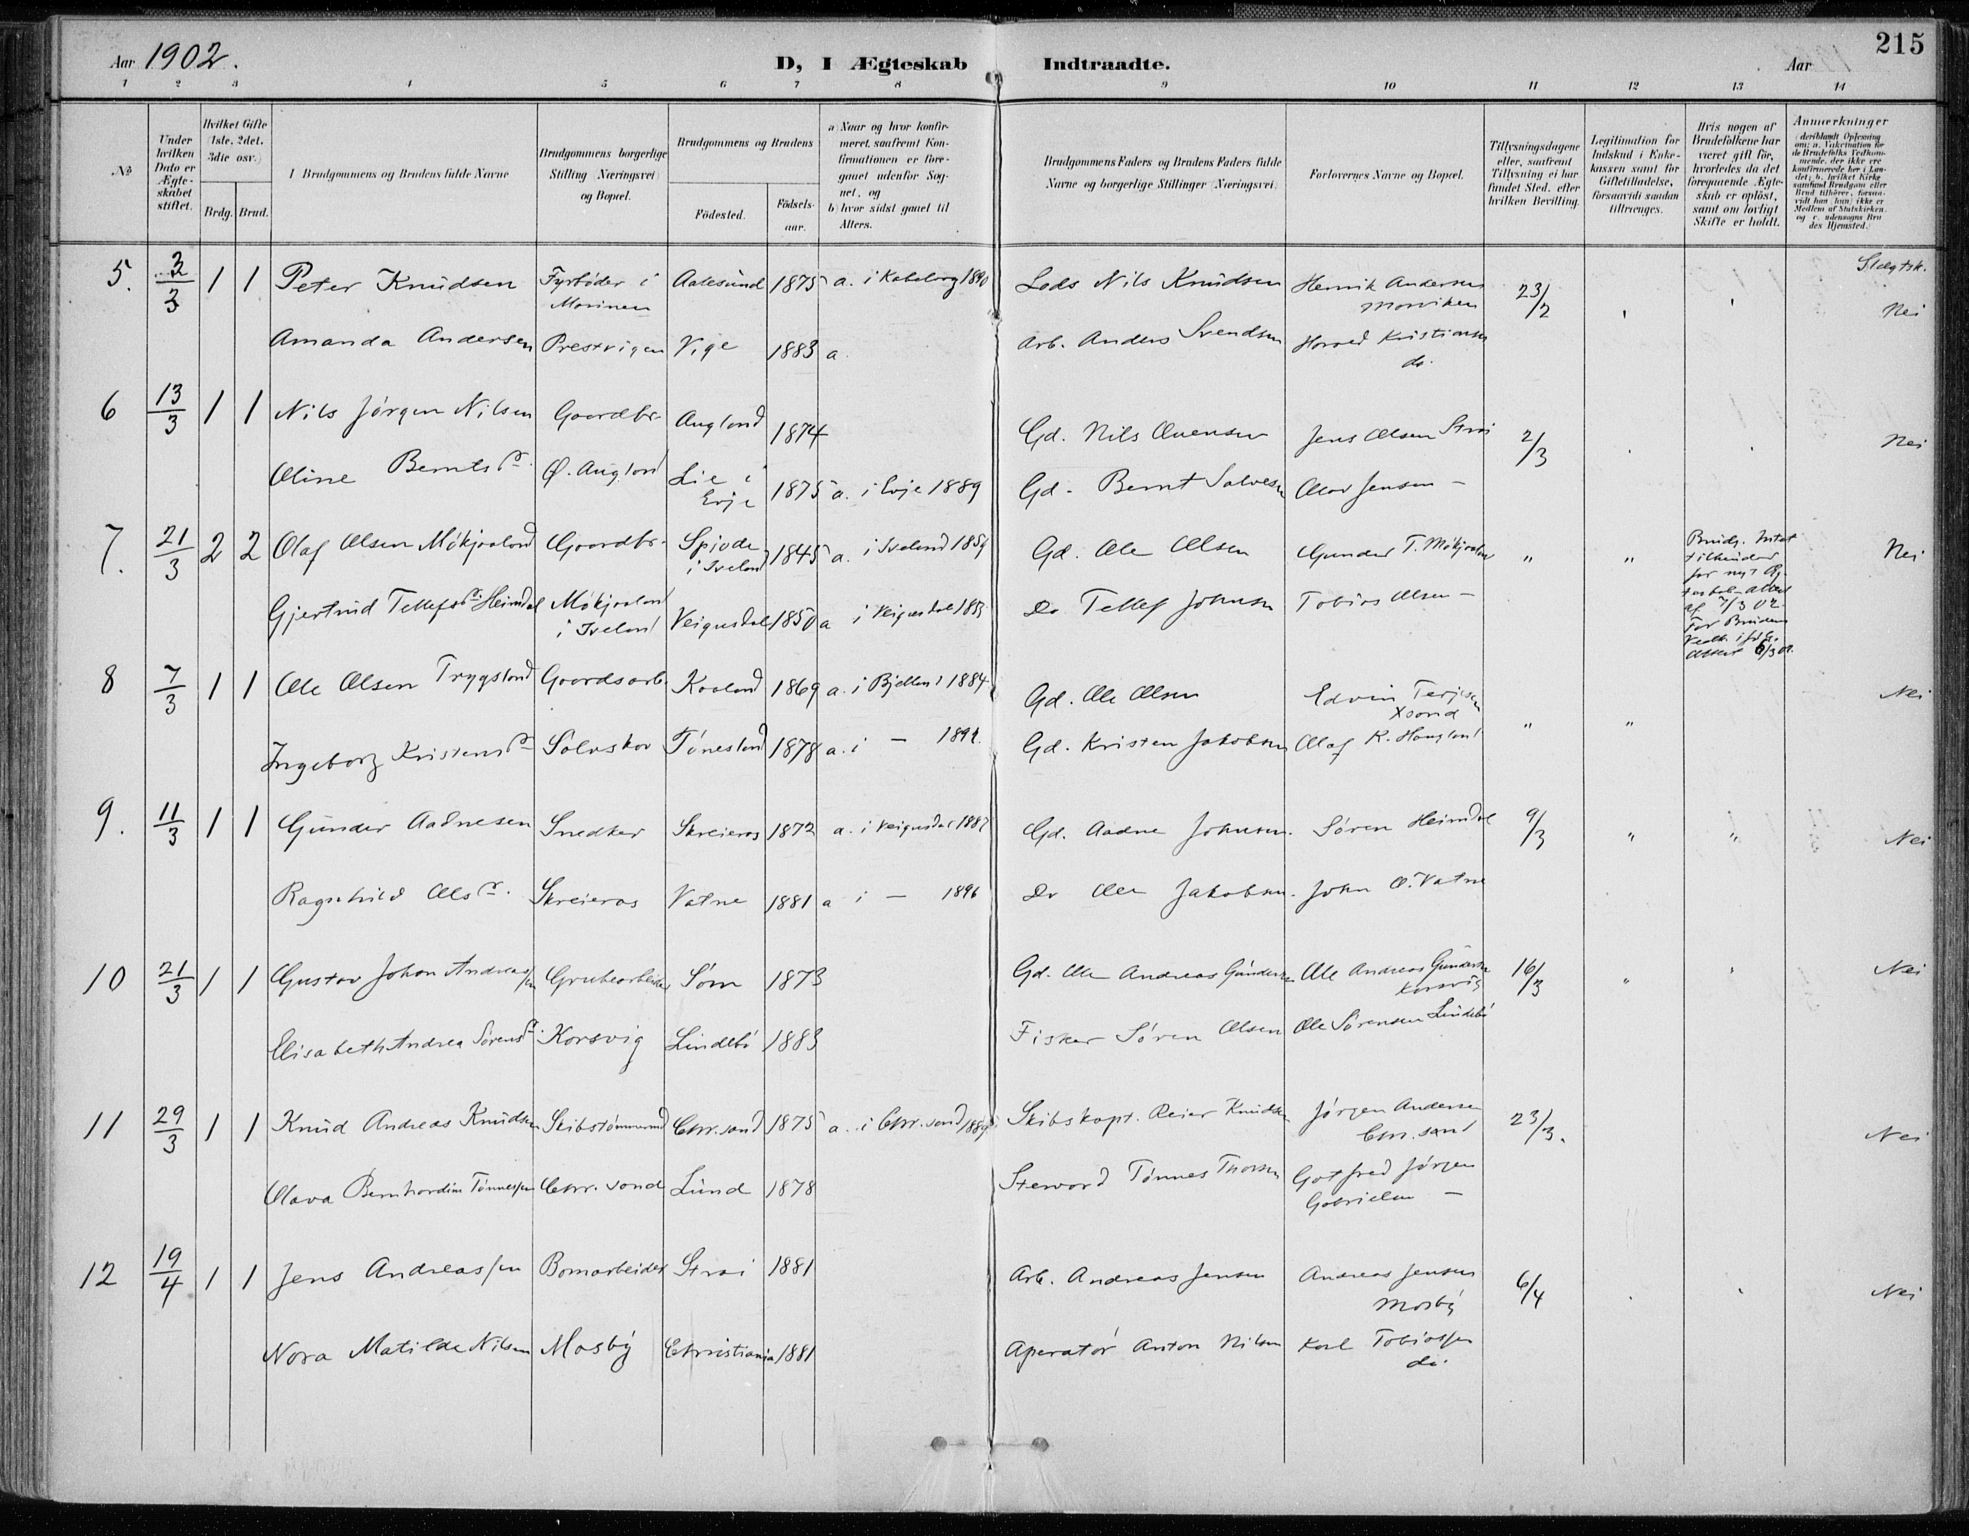 215
Aar 1902.
D, I Ægteskab Indtraadte.
Aar
1 2 3 4 5 6 7 8 9 10 11 12 13 14
No
Under hvilken Dato er Ægteskabet stiftet.
Hvilket Gifte (1ste, 2det, 3die osv.)
Brdg. Brud.
I Brudgommens og Brudens fulde Navne
Brudgommens borgerlige Stilling (Næringsvei) og Bopæl.
Brudgommens og Brudens
Födested.
Födselsaar.
a) Naar og hvor konfirmeret, saafremt Konfirmationen er foregaaet udenfor Sognet, og
b) hvor sidst gaaet til Alters.
Brudgommens Faders og Brudens Faders fulde Navne og borgerlige Stillinger (Næringsvei)
Forlovernes Navne og Bopæl.
Tillysningsdagene eller, saafremt Tillysning ei har fundet Sted, efter hvilken Bevilling.
Legitimation for Indskud i Enkekassen samt for Giftetilladelse, forsaavidt saadan tiltrænges.
Hvis nogen af Brudefolkene har været gift för, hvorledes da det foregaaende Ægteskab er oplöst, samt om lovligt Skifte er holdt.
Anmerkninger
Slægtsk.
5. 3/3 1 1 Peter Knudsen Fyrbøder i Marinen Aalesund 1875 a. Lods Nils Knudsen Henrik Andersen 23/2 Nei
Amanda Andersen Prestvigen Vige 1883 a. Arb. Anders Svendsen Kristiansen do.
6 13/3 1 1 Nils Jørgen Nilsen Gaardbr. Augland 1874 Gd. Nils Jens Olsen Strai 2/3 Nei
Oline Bernts Ø. Augland Lie i Evje 1875 a. i Evje 1889 Gd. Bernt Salvesen Olav Jensen —
7. 21/3 2 2 Olaf Olsen Møkjaaland Gaardbr. i Iveland 1845 a. i Iveland 1859 Gd. Ole Olsen Gunder T. Møkjaaland " " Nei
Gjertrud Tellefsd. Heimdal Møkjaaland i Iveland Veigusdal 1850 a i Veigusdal Do Tellef Johnsen Tobias Olsen —
8 7/3 1 1 Ole Olsen Trygsland Gaardsarb. Kvaaland 1869 a. i Bjelland 1884 Gd. Ole Olsen Edvin Terjesen " " Nei
Ingeborg Kristensd. Tønesland 1878 a. i — Gd. Kristen Jakobsen Olaf K. Haugland
9. 11/3 1 1 Gunder Aadnesen Snedker Skreieros 1872 a. i Veigusdal 1887 Gd. Aadne Johnsen. Søren Heimdal 9/3 " " Nei
Ragnhild Olsd. Skreieros Vatne 1881 a i — 1896 Do Ole Jakobsen. John O. Vatne
10 21/3 1 1 Gustav Johan Andreassen Grubearbeider Søm 1873 Gd. Ole Andreas Gundersen Ole Andreas Gundersen Korsvig 16/3 " Nei
Elisabeth Andrea Sørensd. Korsvig Lindebø 1883 Fisker Søren Olsen Ole Sørensen Lindebø
11 29/3 1 1 Knud Andreas Knudsen Skibstømmermd Chr.sand 1875 a. i Chr.sand 1889 Skibskapt. Reier Knudsen Jørgen Andersen Chr.sand 23/3. Nei
Olava Bernhardine Tønnessen Chr.sand Lund 1878 Steward Tønnes Thorsen Gotfred Jørgen Gabrielsen —
12 19/4 1 1 Jens Andreassen Bomarbeider Strai 1881 Arb. Andreas Jensen Andreas Jensen Mosby 6/4 Nei
Nora Matilde Nilsen Mosby Christiania 1881 Operatør Anton Nilsen Karl Tobiassen do.